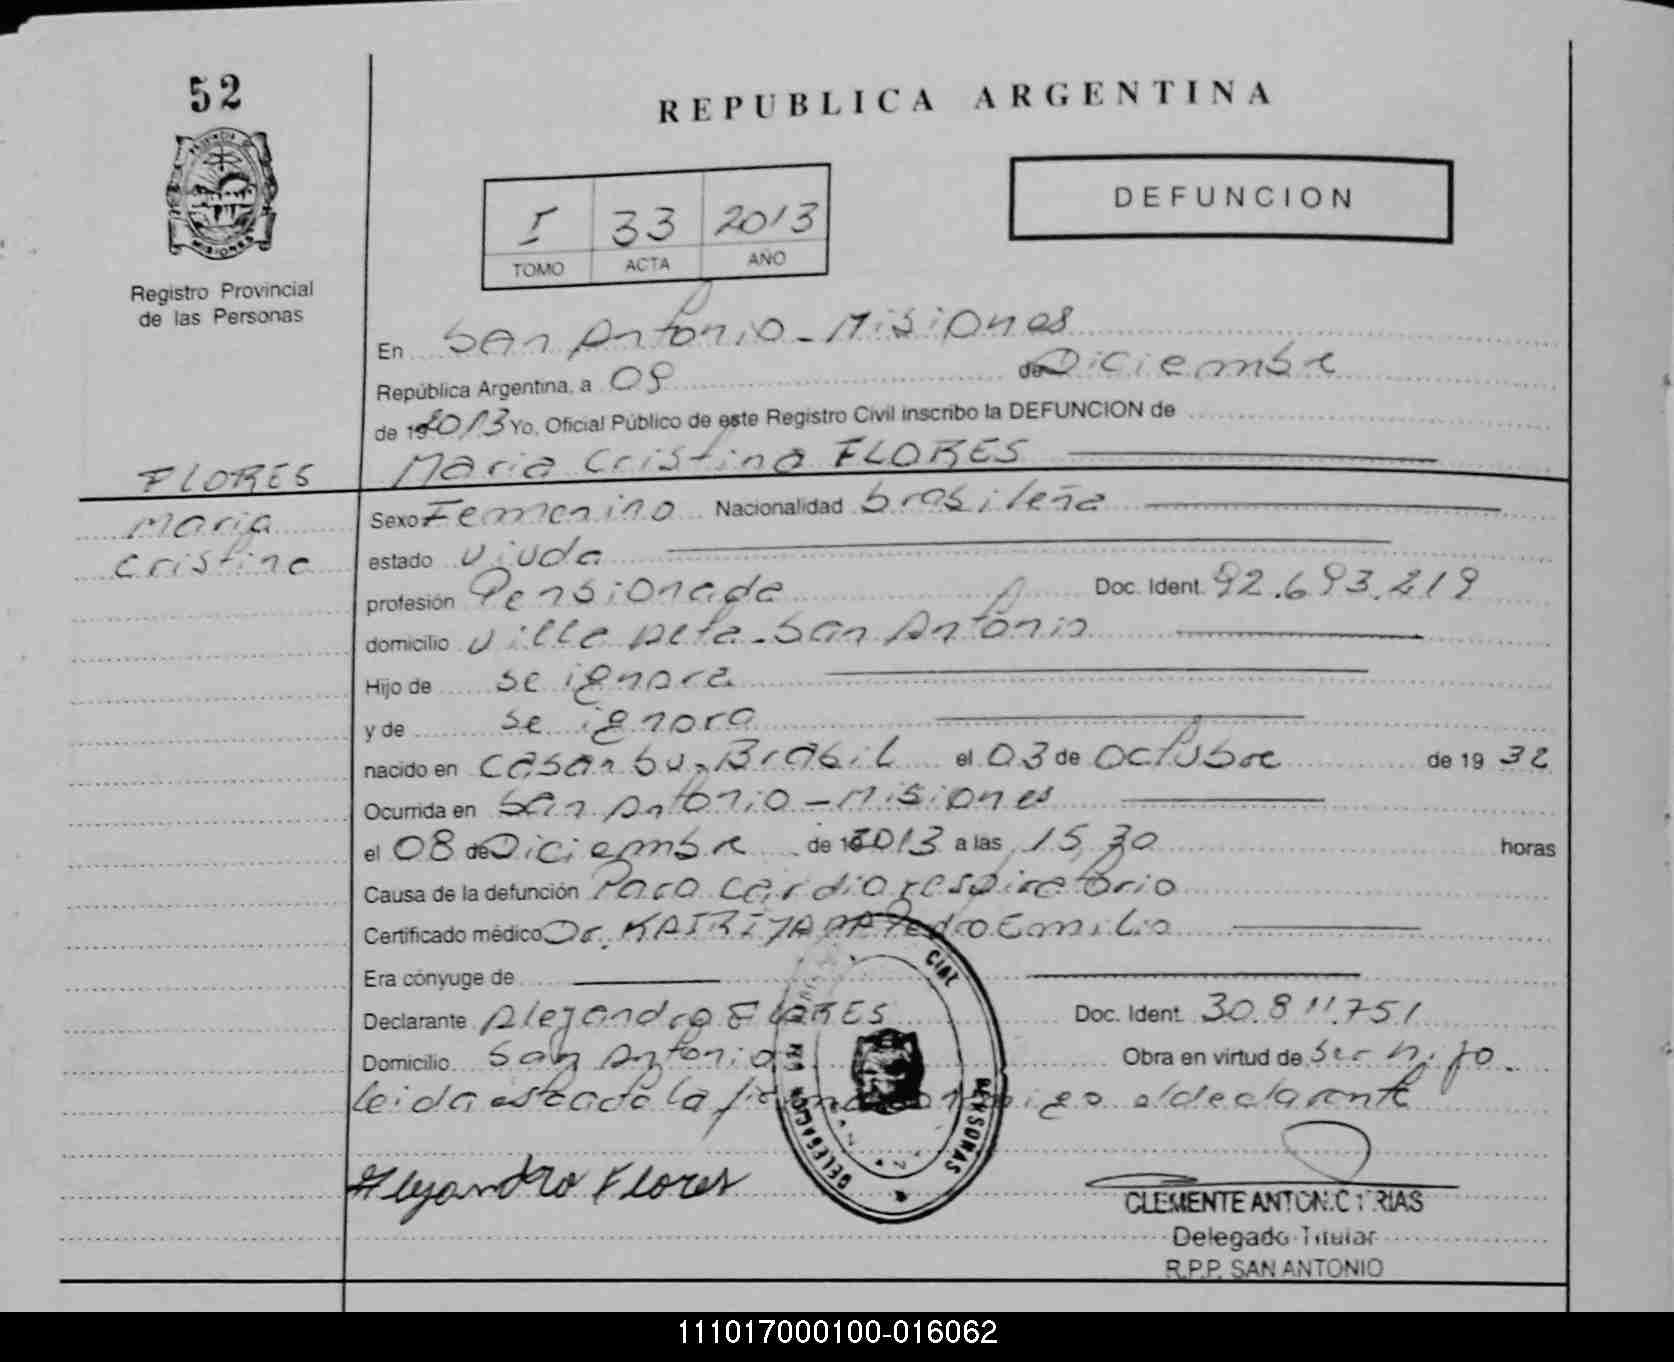 52
REPUBLICA ARGENTINA
PROVINCIA DE
MISIONES
Registro Provincial
de las Personas
I 33 2013
TOMO ACTA AÑO
DEFUNCION
En San Antonio - Misiones
República Argentina, a 09 de Diciembre
de 19 2013 Yo, Oficial Público de este Registro Civil inscribo la DEFUNCION de
FLORES Maria Cristina FLORES
Maria Sexo Femenino Nacionalidad brasileña
Cristina estado viuda
profesión Pensionada Doc. Ident. 92.693.219
domicilio Villa - San Antonio
Hijo de se ignora
y de se ignora
nacido en - Brasil el 03 de Octubre de 19 32
Ocurrida en San Antonio - Misiones
el 08 de Diciembre de 19 2013 a las 15,30 horas
Causa de la defunción Paro cardiorespiratorio
Certificado médico Dr. Pedro Emilio
Era cónyuge de
Declarante Alejandro FLORES Doc. Ident. 30.811.751
Domicilio San Antonio Obra en virtud de ser hijo.
leida esta acta la firma conmigo el declarante
DELEGACION PERSONAS
Alejandro Flores
CLEMENTE
Delegado Titular
R.P.P. SAN ANTONIO
111017000100-016062